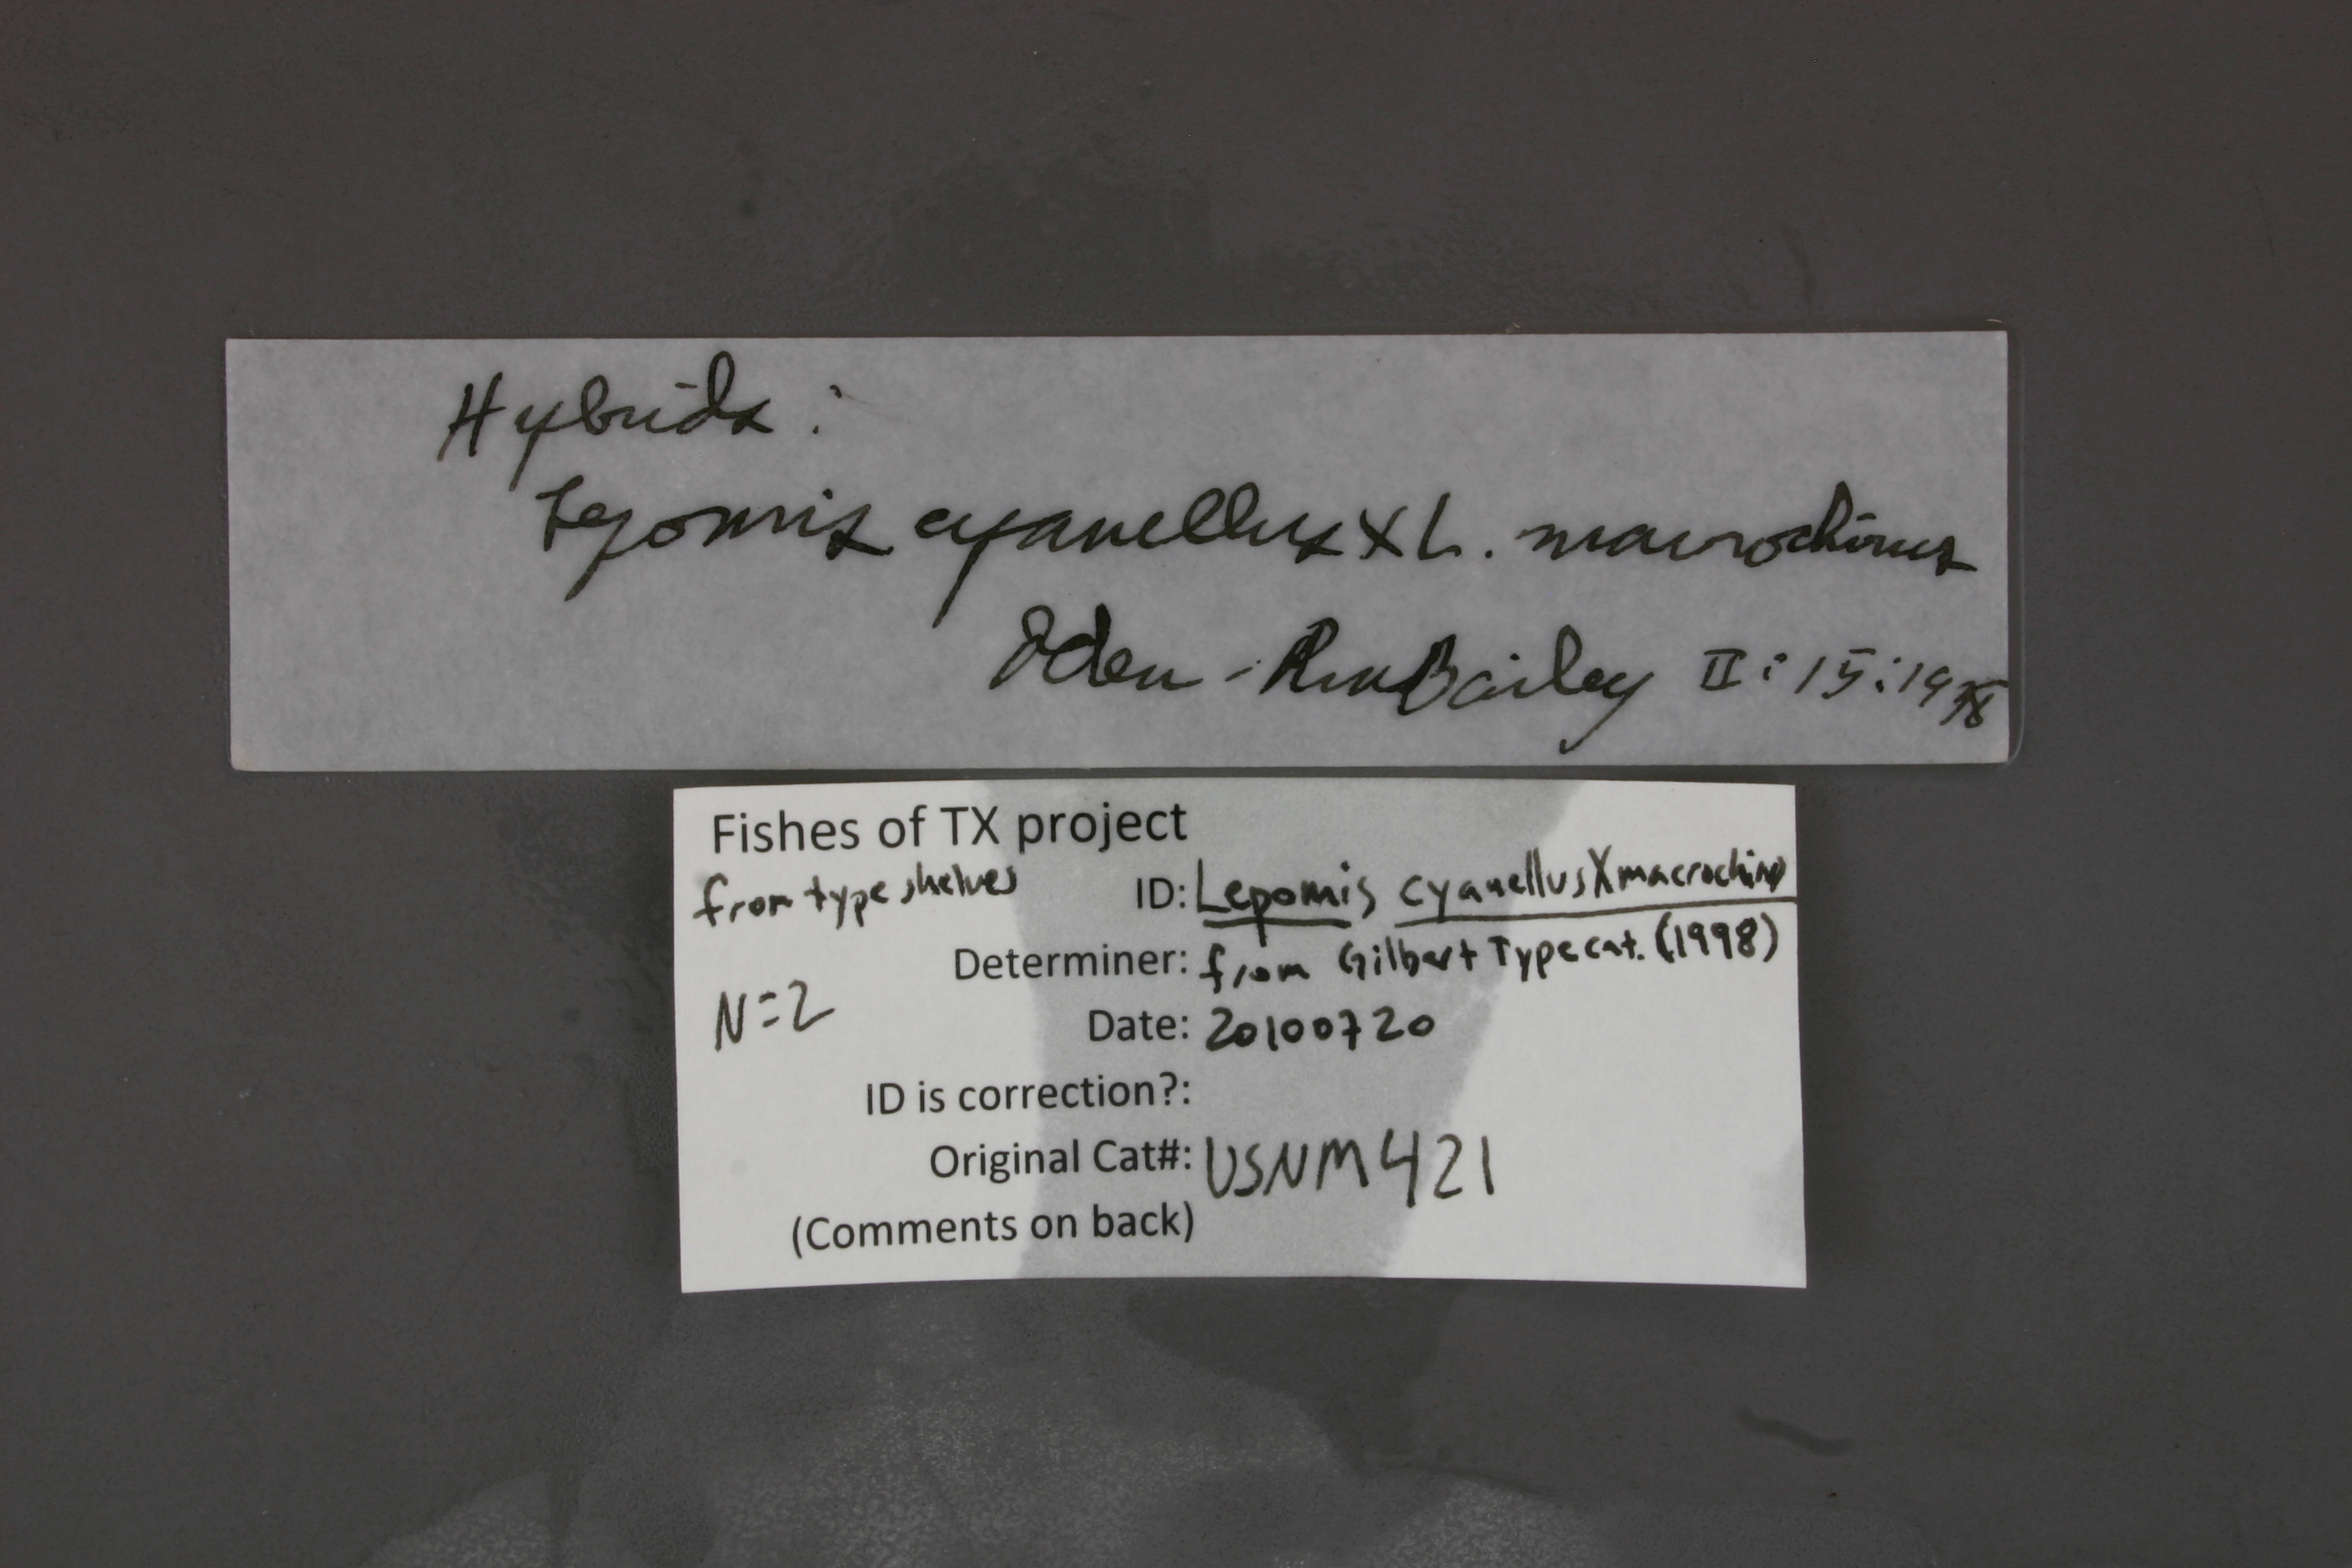 Hybrids:
Lepomis cyanellus X L. macrochirus
Iden - RMBailey II:15:19
Fishes of TX project
from type shelves
ID: Lepomis cyanellus X macrochirus
Determiner: from Gilbert Type cat. (1998)
N=2
Date: 20100720
ID is correction?:
Original Cat#: USNM 421
(Comments on back)